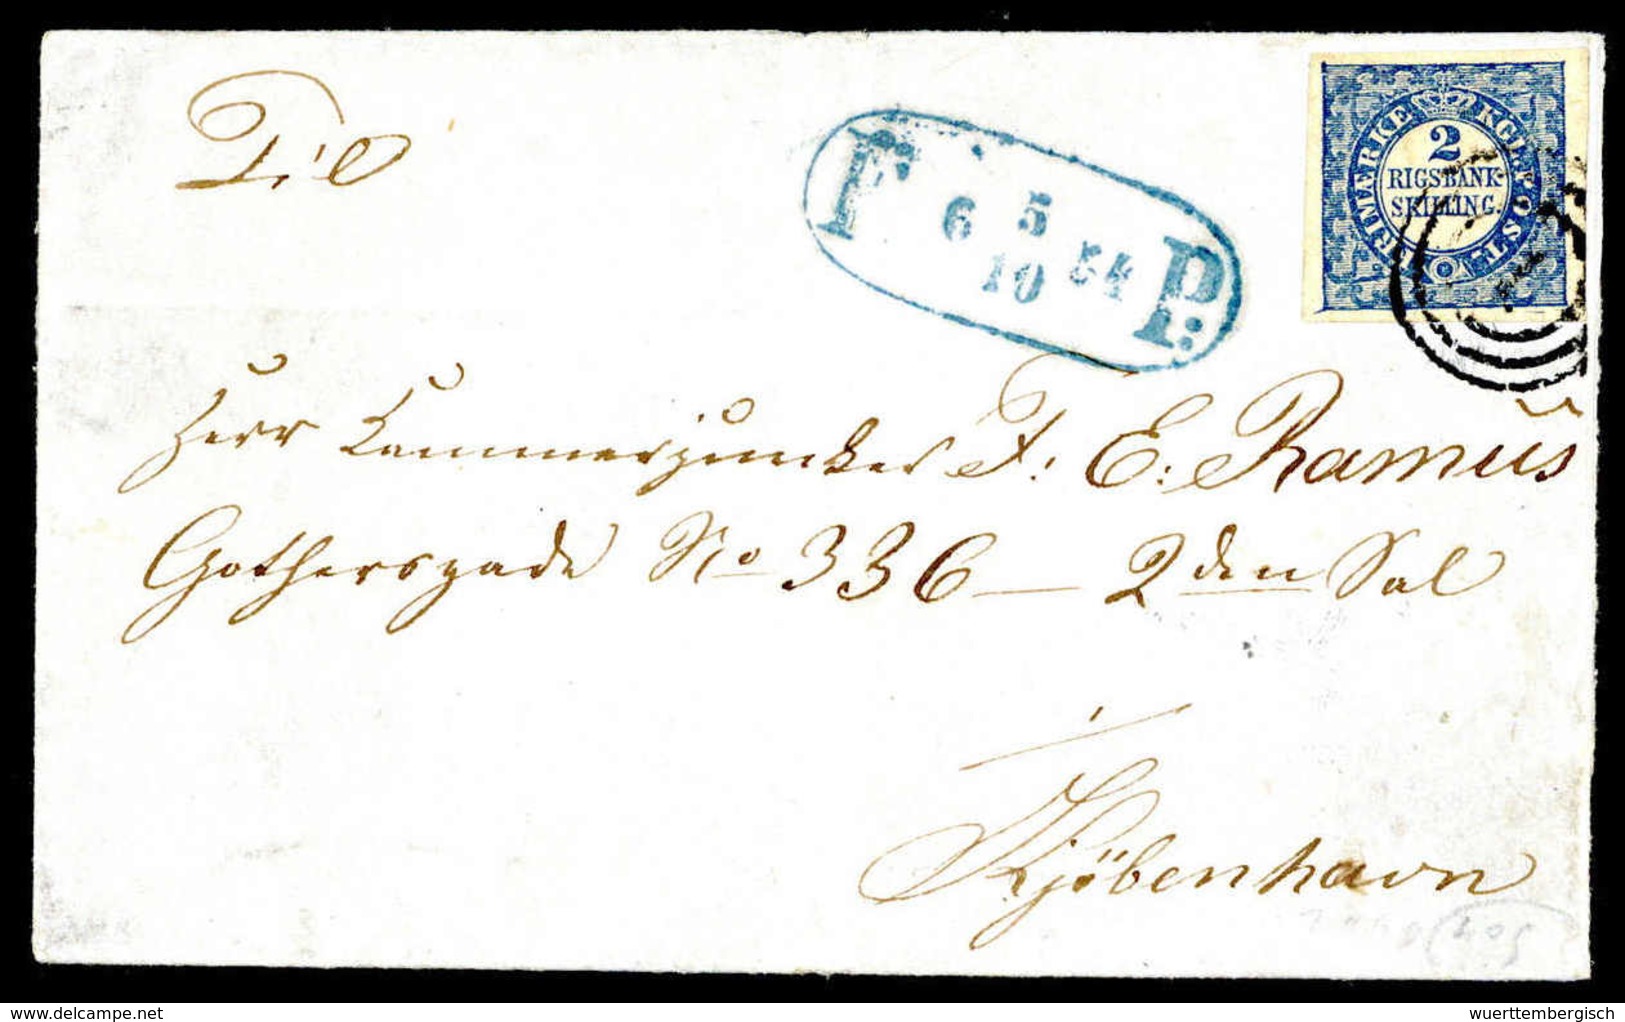 Til
F 6 5/10 54 P:
KGL POST FRIMÆRKE
2
RIGSBANK
SKILLING.
Herr Kammerjunker F: E: Ramus
Gothersgade No 336 — 2den Sal
Kjöbenhavn
delcampe.net
wuerttembergisch